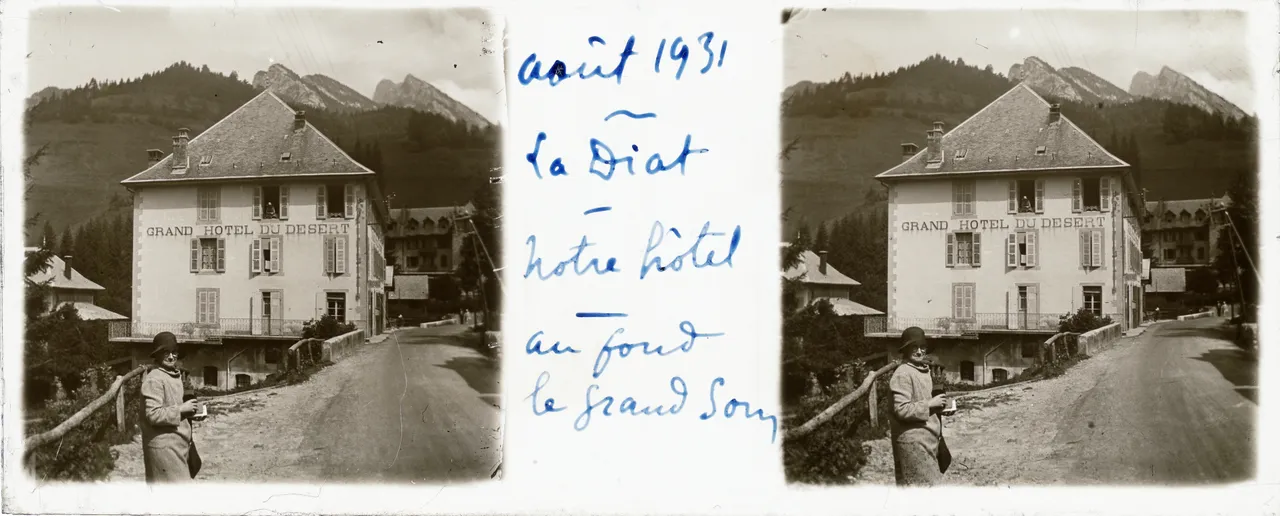 GRAND HOTEL DU DESERT
août 1931
La Diat
notre hôtel
au fond
le grand Som
GRAND HOTEL DU DESERT